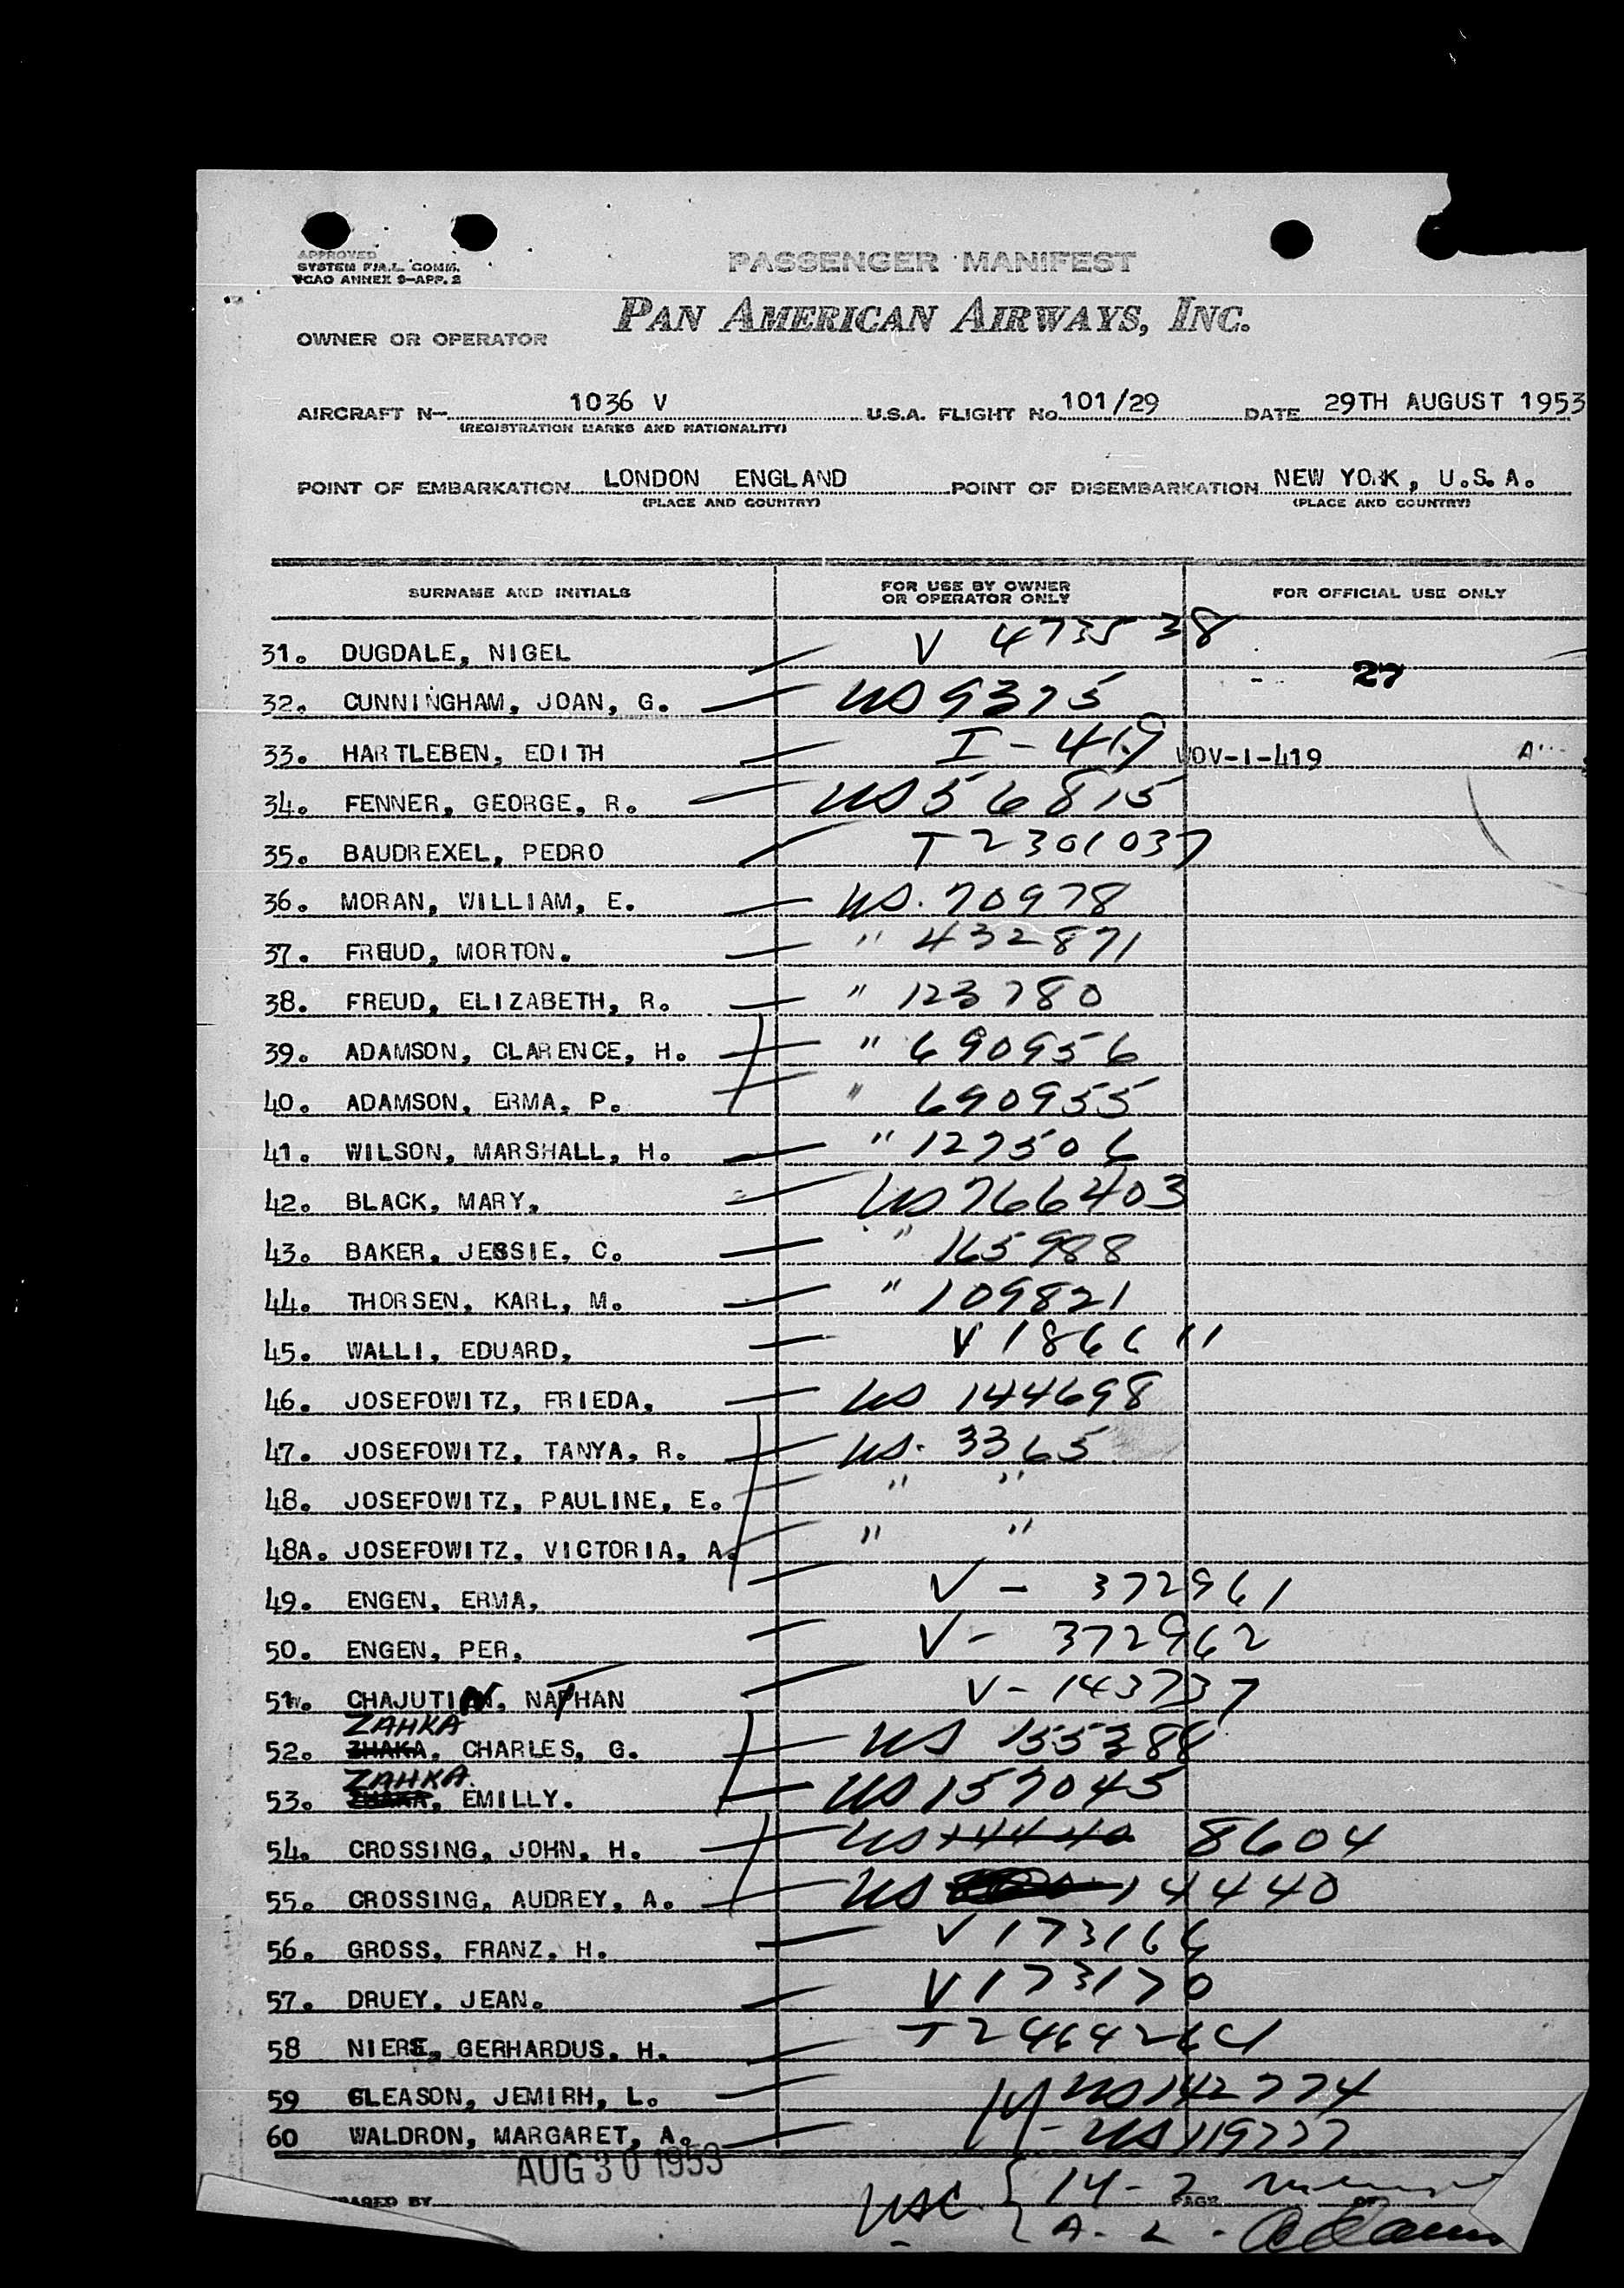 APPROVED
SYSTEM F.M.L. COMM.
ICAO ANNEX 9-APP. 2
PASSENGER MANIFEST
PAN AMERICAN AIRWAYS, INC.
OWNER OR OPERATOR
AIRCRAFT N- 1036 V U.S.A. FLIGHT No. 101/29 DATE 29TH AUGUST 1953
(REGISTRATION MARKS AND NATIONALITY)
POINT OF EMBARKATION LONDON ENGLAND POINT OF DISEMBARKATION NEW YORK, U.S.A.
(PLACE AND COUNTRY) (PLACE AND COUNTRY)
SURNAME AND INITIALS FOR USE BY OWNER OR OPERATOR ONLY FOR OFFICIAL USE ONLY
31. DUGDALE, NIGEL V 473538
27
32. CUNNINGHAM, JOAN, G. US 9375
33. HARTLEBEN, EDITH I-419 VOV-I-419
34. FENNER, GEORGE, R. US 56815
35. BAUDREXEL, PEDRO T 2301037
36. MORAN, WILLIAM, E. US. 70978
37. FREUD, MORTON. " 432871
38. FREUD, ELIZABETH, R. " 123780
39. ADAMSON, CLARENCE, H. " 690956
40. ADAMSON, ERMA, P. " 690955
41. WILSON, MARSHALL, H. " 127506
42. BLACK, MARY, US 766403
43. BAKER, JESSIE, C. " 165988
44. THORSEN, KARL, M. " 109821
45. WALLI, EDUARD, V 186611
46. JOSEFOWITZ, FRIEDA, US 144698
47. JOSEFOWITZ, TANYA, R. US. 3365
48. JOSEFOWITZ, PAULINE, E. " "
48A. JOSEFOWITZ, VICTORIA, A. " "
49. ENGEN, ERMA, V - 372961
50. ENGEN, PER, V - 372962
51. CHAJUTIN, NATHAN V - 143737
ZAHKA
52. ZHAKA, CHARLES, G. US 155388
ZAHKA
53. ZHAKA, EMILLY. US 157045
54. CROSSING, JOHN, H. US 14440 8604
55. CROSSING, AUDREY, A. US 14440
56. GROSS, FRANZ, H. V 173166
57. DRUEY, JEAN. V 173170
58 NIERS, GERHARDUS, H. T 2464261
59 GLEASON, JEMIRH, L. US 142774
60 WALDRON, MARGARET, A. - US 119777
AUG 30 1953
PARED BY USC 14 - 2 PAGE OF
A - 2 -